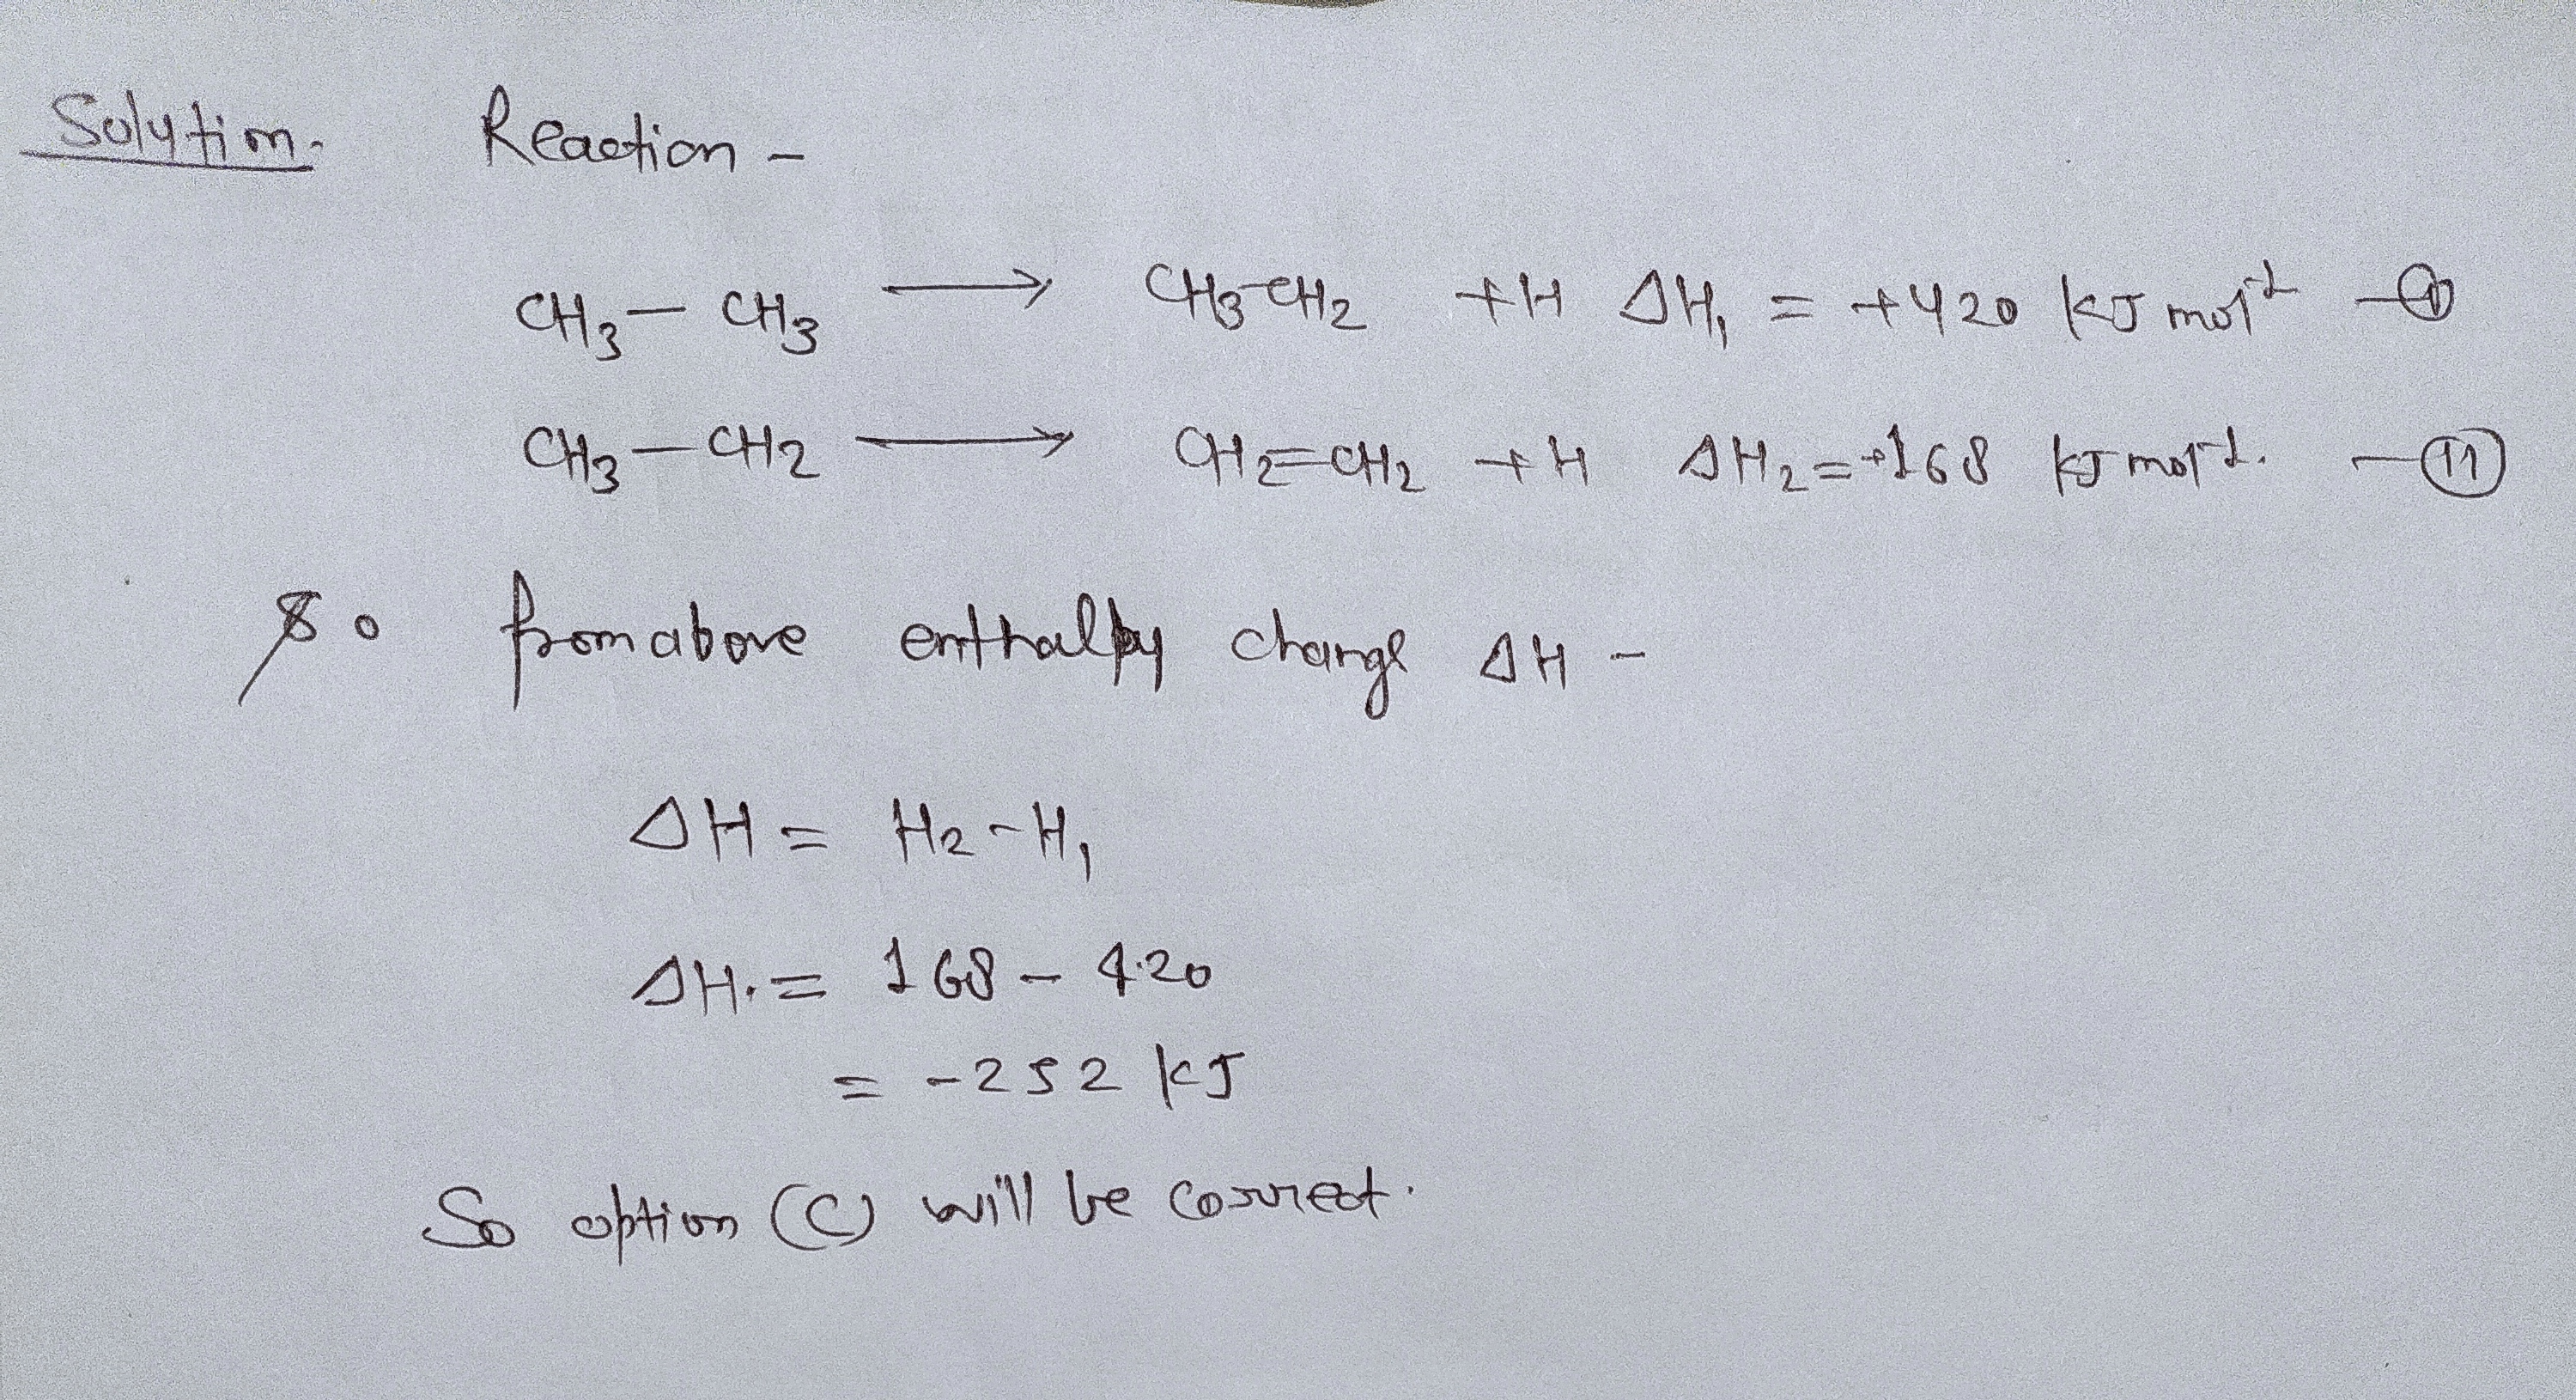 Solution. Reaction -
CH3 - CH3 ⟶ CH3-CH2 + H ΔH1 = +420 KJ mol-1 —(1)
CH3 - CH2 ⟶ CH2=CH2 + H ΔH2 = +168 KJ mol-1. —(11)
So from above enthalpy change ΔH -
ΔH = H2 - H1
ΔH. = 168 - 420
= -252 KJ
So option (C) will be correct.